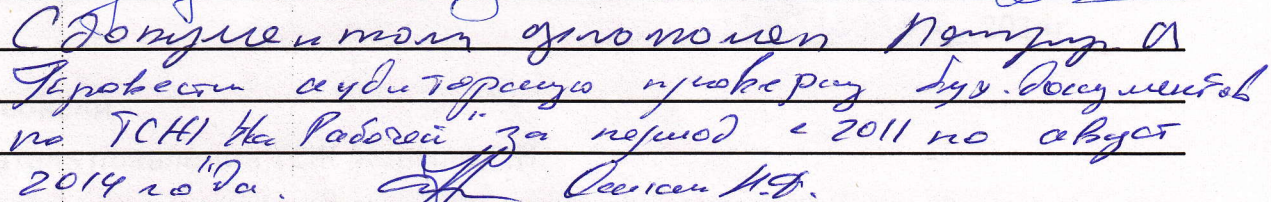 С документами ознакомлен
Провести аудиторскую проверку бух. документов
по ТСЖ "На Рабочей" за период с 2011 по август
2014 года. Н.Ф.